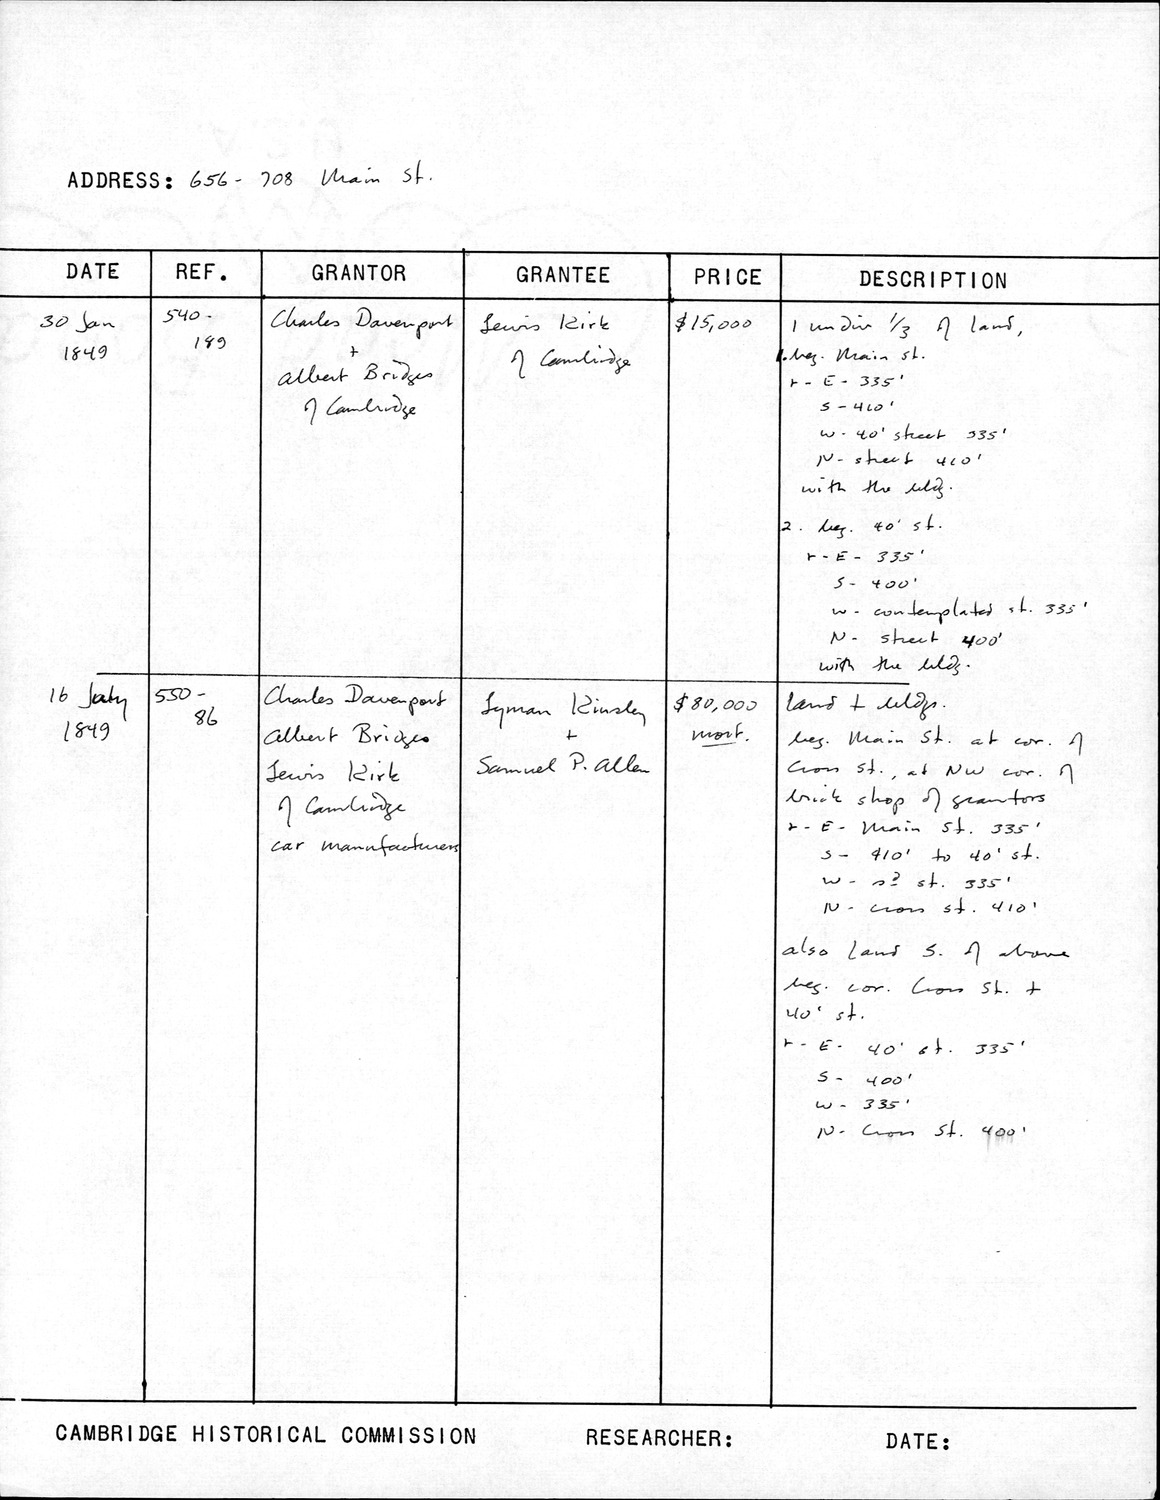 ADDRESS: 656- 708 Main St.
DATE REF. GRANTOR GRANTEE PRICE DESCRIPTION
30 Jan
1849
540-
189
Charles Davenport
+
Albert Bridges
of Cambridge
Lewis Kirk
of Cambridge
$15,000
1 undiv 1/3 of land,
1. beg. Main St.
r - E - 335'
S - 410'
W - 40' street 335'
N - street 410'
with the bldg.
2. beg. 40' st.
r - E - 335'
S - 400'
W - contemplated st. 335'
N - street 400'
with the bldg.
16 July
1849
550-
86
Charles Davenport
Albert Bridges
Lewis Kirk
of Cambridge
car manufacturers
Lyman Kinsley
+
Samuel P. Allen
$80,000
mort.
land + bldgs.
beg. Main St. at cor. of
Cross St., at NW cor. of
brick shop of grantors
r - E - Main St. 335'
S - 410' to 40' st.
W - sd st. 335'
N - Cross St. 410'
also land S. of above
beg. cor. Cross St. +
40' st.
r - E - 40' st. 335'
S - 400'
W - 335'
N - Cross St. 400'
CAMBRIDGE HISTORICAL COMMISSION RESEARCHER: DATE: